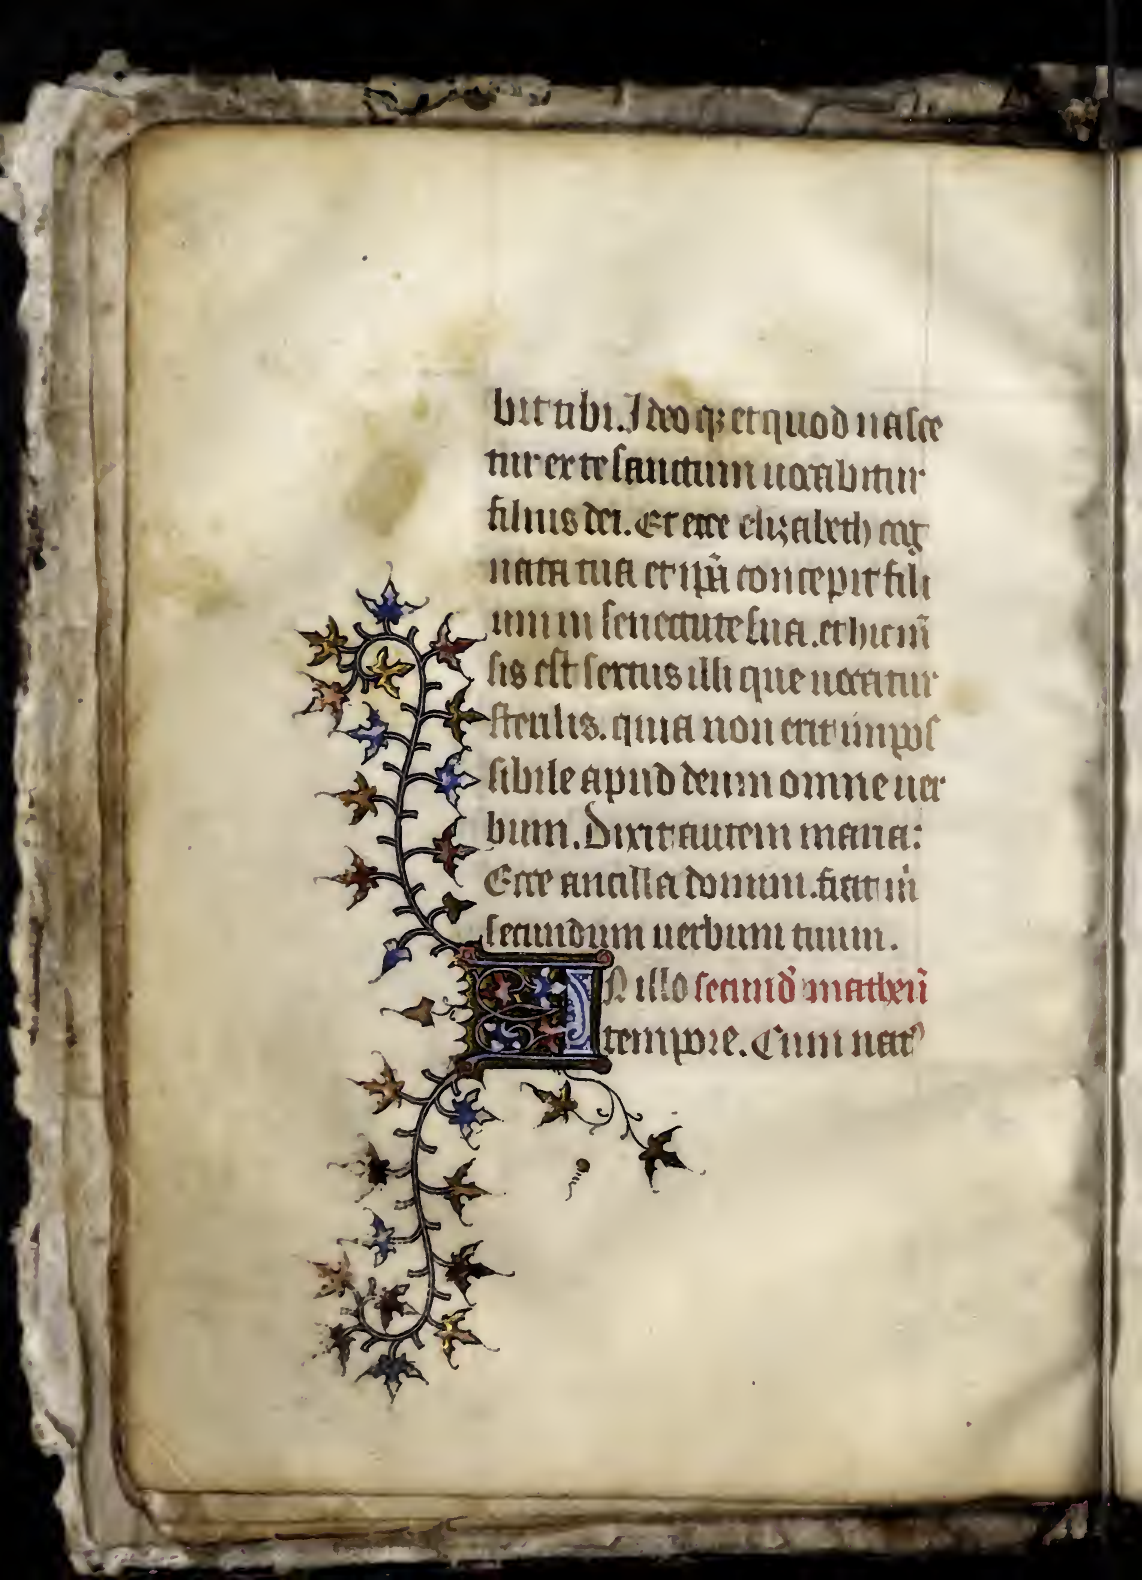 bit tibi. Ideoq; et quod nasce
tur ex te sanctum uocabitur
filius dei. Et ecce elizabeth cog
nata tua et ip̃a concepit fili
um in senectute sua. et hic m̃
sis est sextus illi que uocatur
sterilis. quia non erit impos
sibile apud deum omne uer
bum. Dixit autem maria:
Ecce ancilla domini. fiat m̊
secundum uerbum tuum.
IN illo secund̊ matheũ
tempore. Cum nat᾽